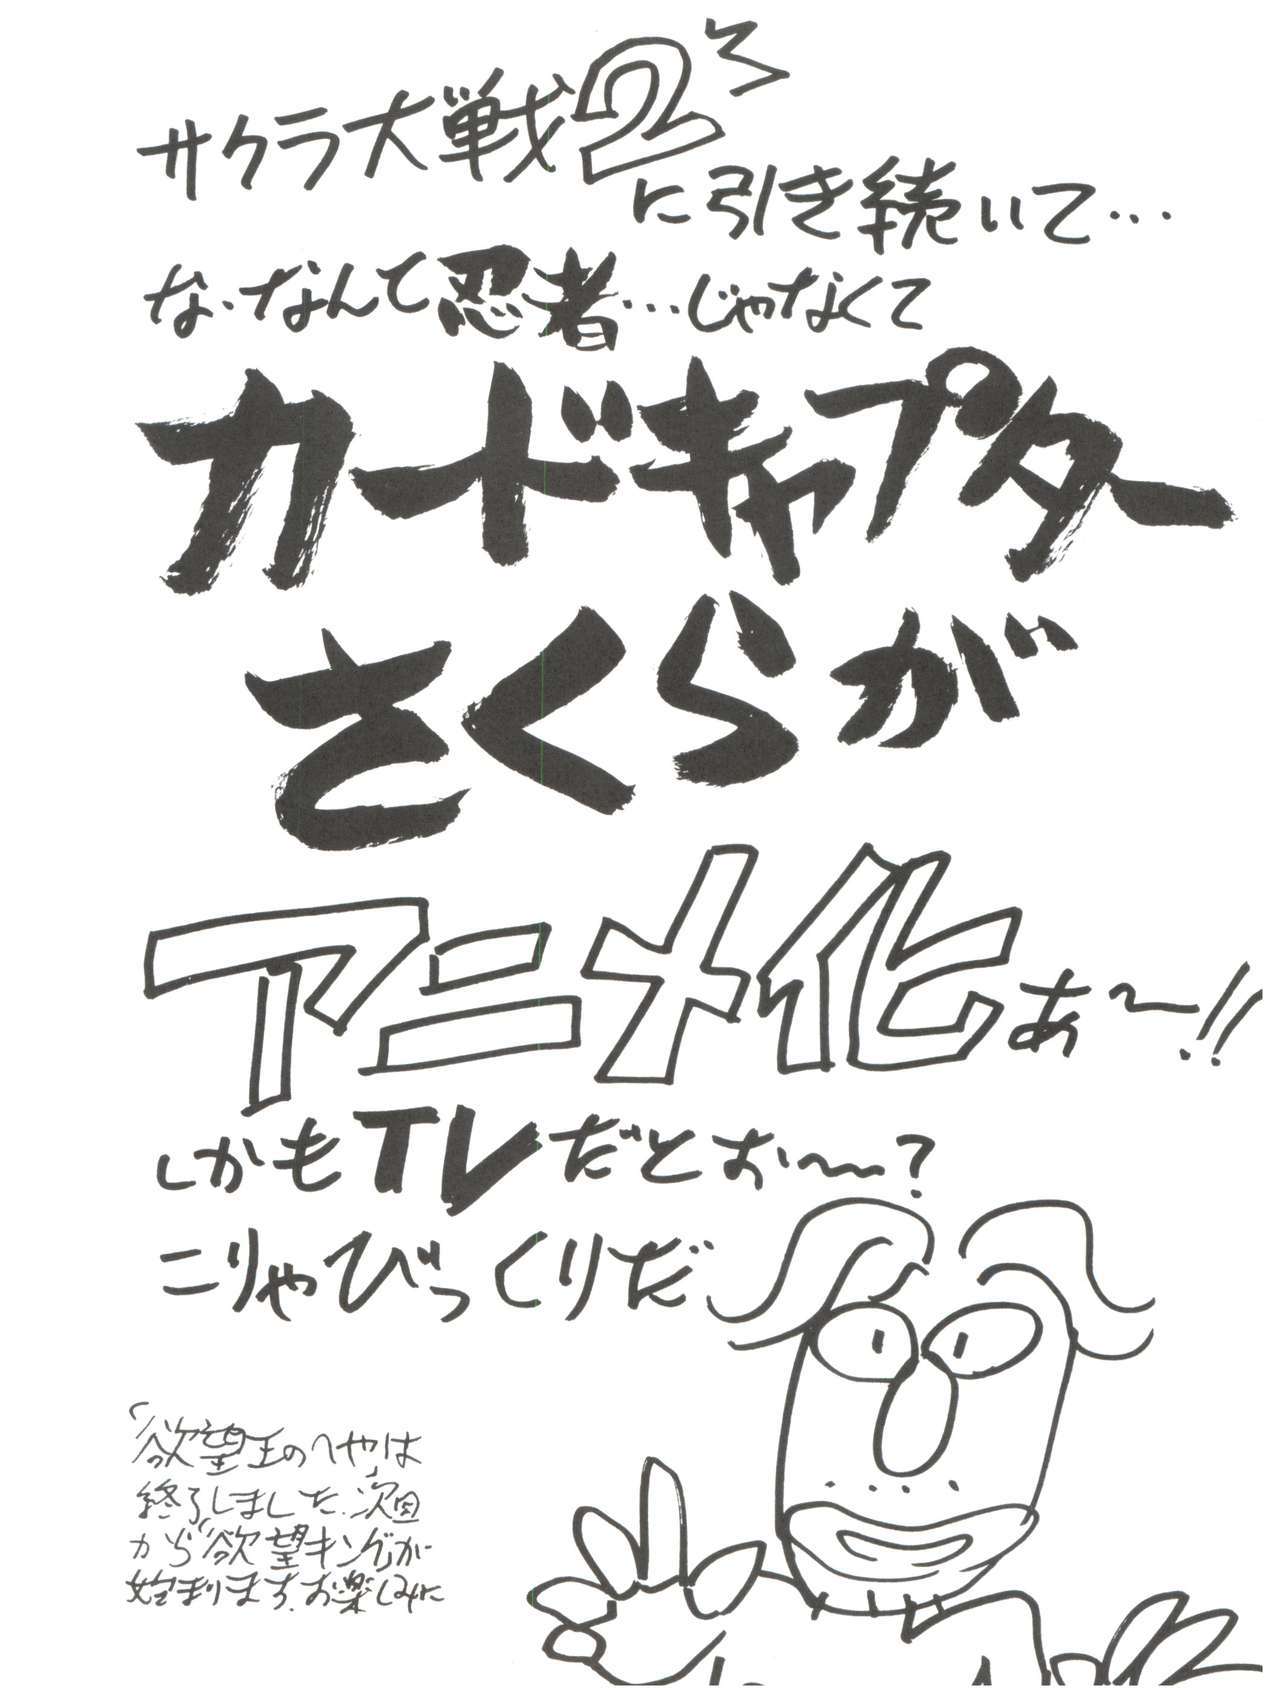 サクラ大戦2
に引き続いて…
な・なんて忍者…じゃなくて
カードキャプター
さくらが
アニメ化ぁ〜!!
しかもTVだとお〜?
こりゃびっくりだ
「欲望王のへや」は
終了しました.次回
から「欲望キング」が
始まります.お楽しみに